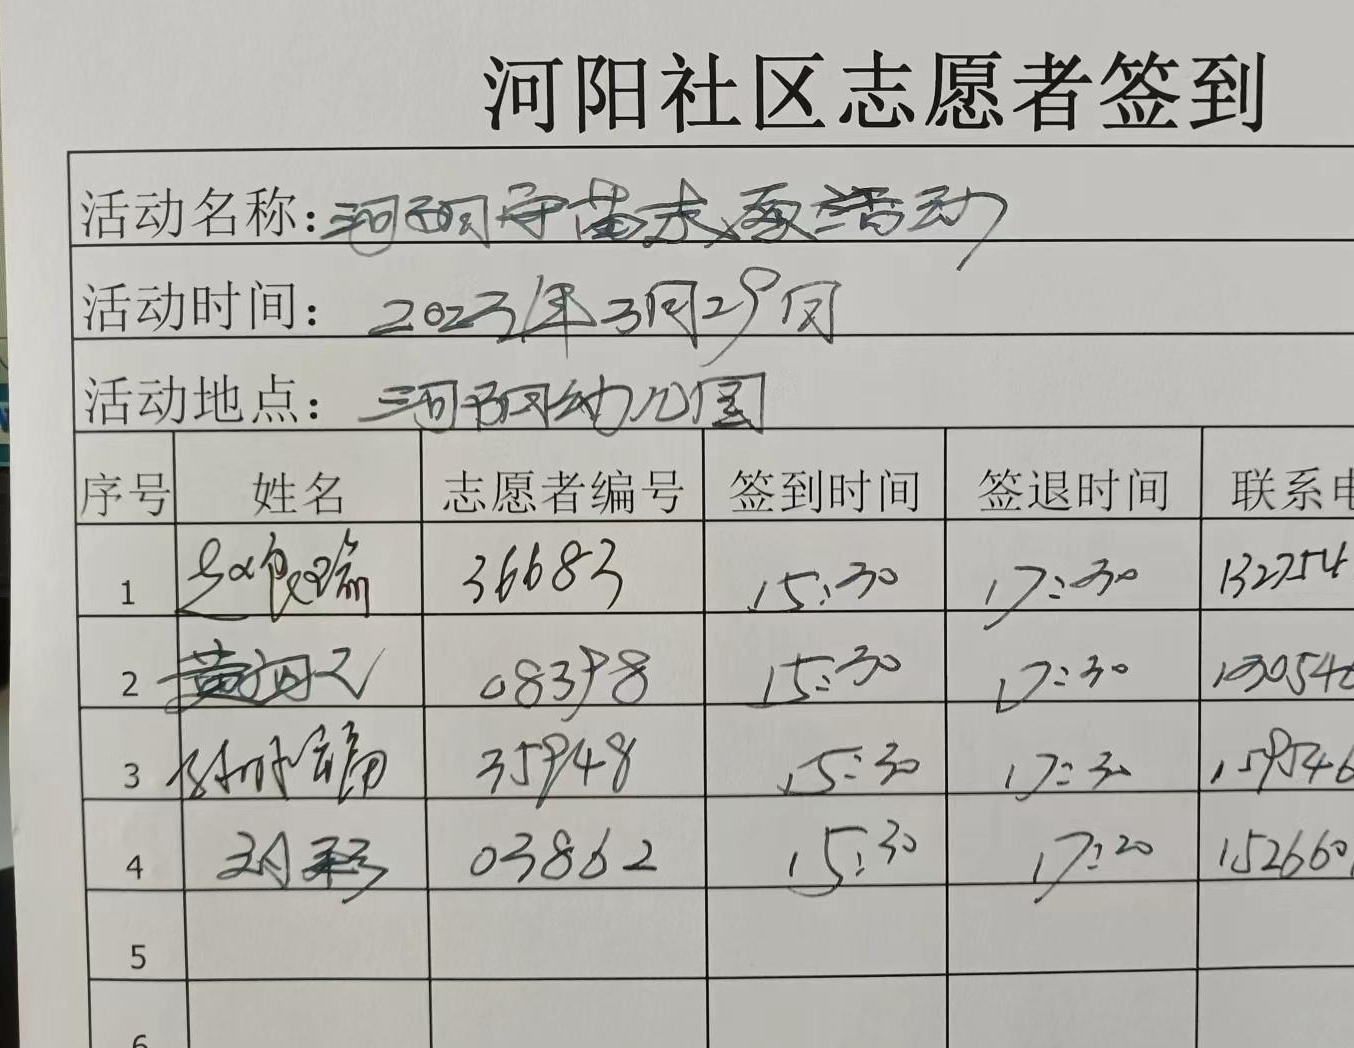 河阳社区志愿者签到
活动名称:河阳守苗志愿活动
活动时间: 2023年3月29日
活动地点: 河阳幼儿园
序号 姓名 志愿者编号 签到时间 签退时间 联系电
1 36683 15:30 17:30 132754
2 08398 15:30 17:30
3 35948 15:30 17:30 159546
4 刘彩 03862 15:30 17:20 152660
5
6